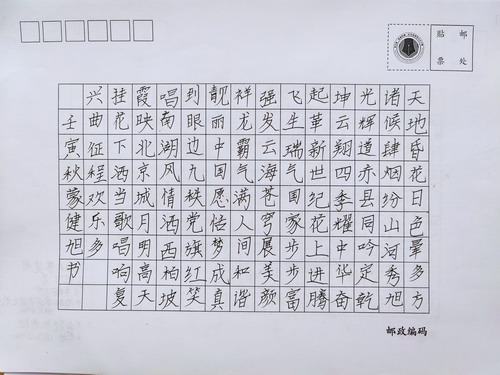 贴邮
票处
天地昏花日色晕多方
诸候肆烟纷山河秀旭
光辉道亦县同吟定乾
坤云翔四季耀中华奋
起革新世纪花上进腾
飞生瑞气国家步步富
强发云海苍穹展美颜
祥龙霸气满人间和谐
靓丽中国愿恬梦成真
到眼边九秩党旗红笑
唱南湖风情洒西柏坡
霞映北京城月明高天
挂花下洒当歌唱响复
兴曲征程欢乐多
壬寅秋蒙健旭书
邮政编码